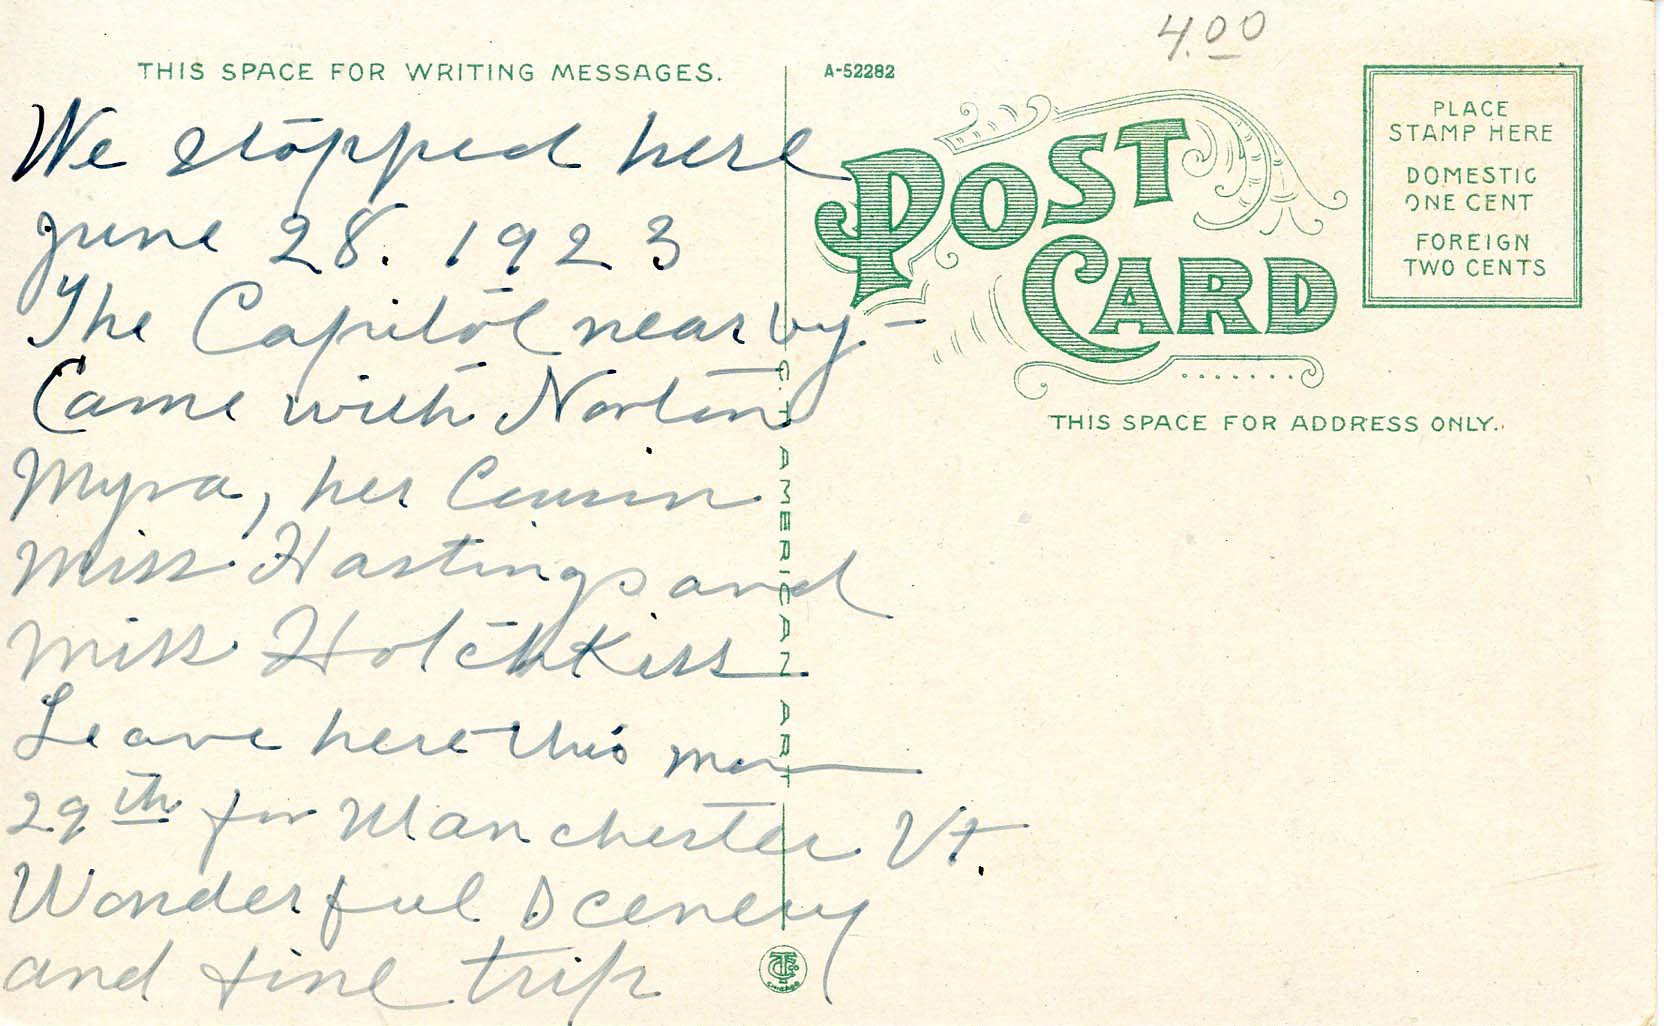 4.00
THIS SPACE FOR WRITING MESSAGES.
A-52282
We stopped here
June 28. 1923
The Capitol near by -
Came with Norton
Myra, her Cousin
Miss Hastings and
Miss Hotchkiss
Leave here this morn
29th for Manchester Vt.
Wonderful Scenery
and fine trip
C.T. AMERICAN ART
CHICAGO
POST
CARD
PLACE
STAMP HERE
DOMESTIC
ONE CENT
FOREIGN
TWO CENTS
THIS SPACE FOR ADDRESS ONLY.